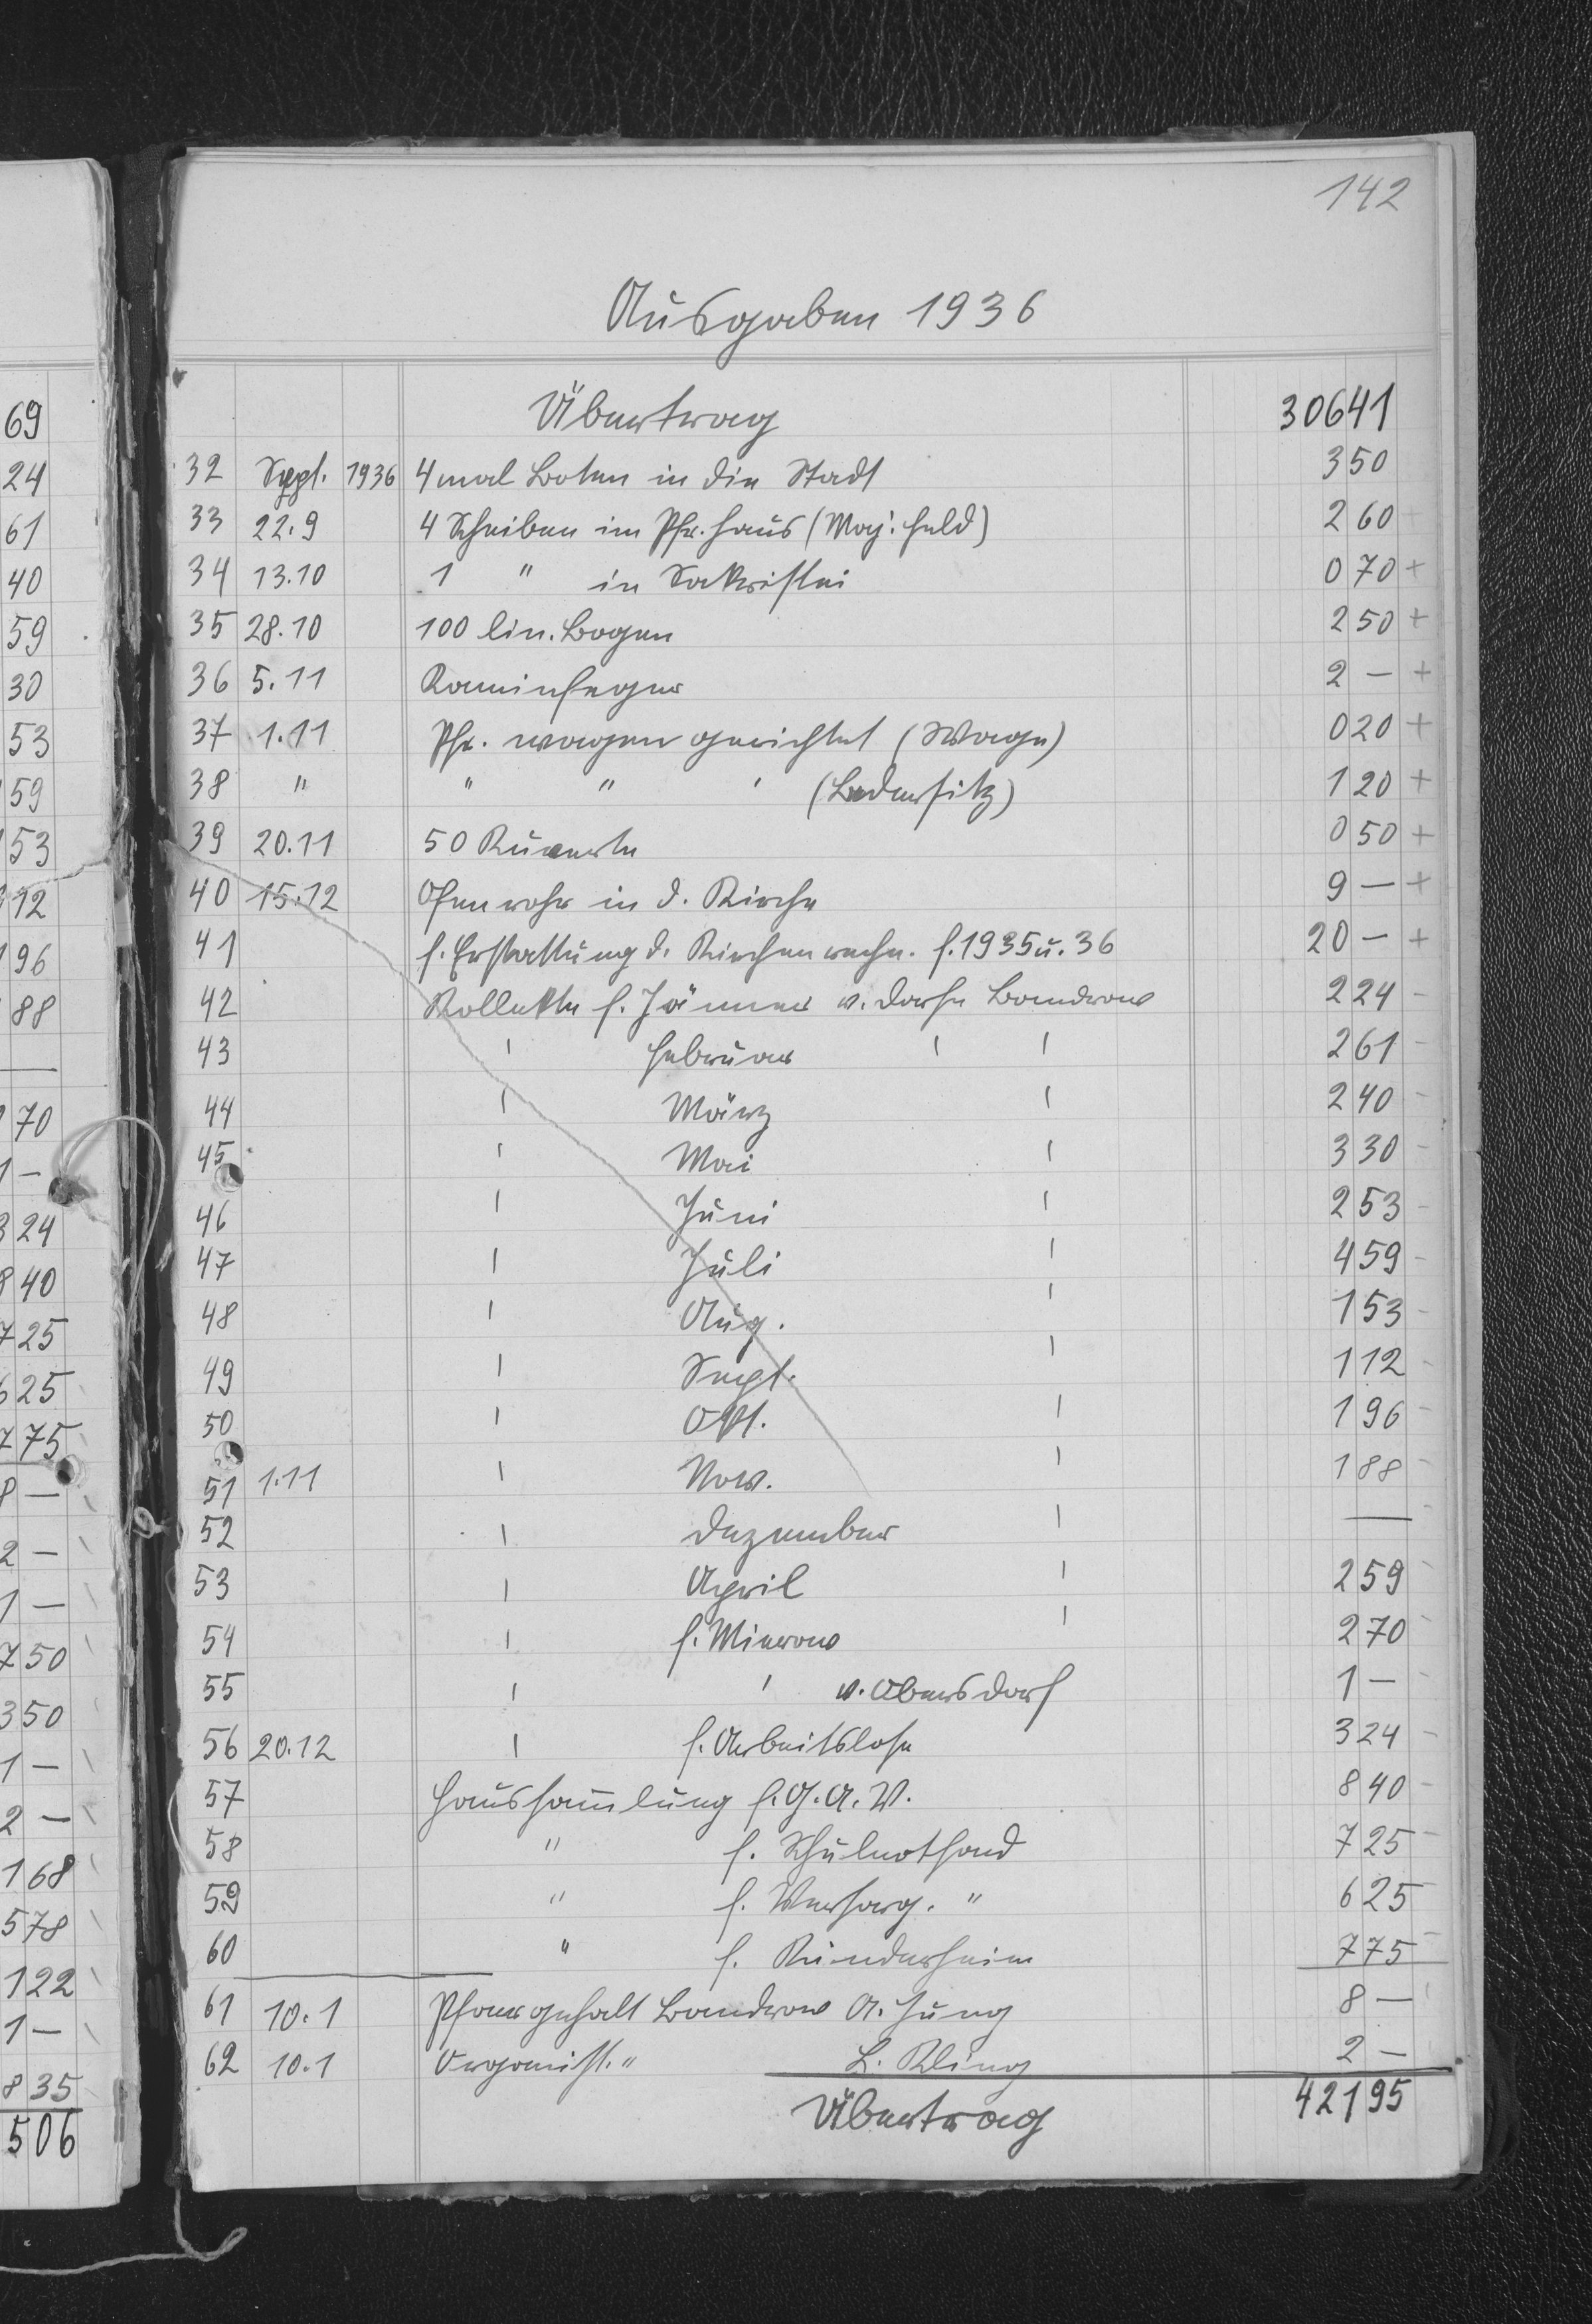 142
Ausgaben 1936
Übertrag 30641
32 Sept. 1936 4 mal Boten in die Stadt 350
33 22.9 4 Scheiben im Pfr. Haus (Maj. Feld) 260 -
34 13.10 1 " in Sakristei 070 +
35 28.10 100 lin. Bogen 250 +
36 5.11 Kaminfeger 2 — +
37 1.11 Pfr. wagen gerichtet (Wage) 020 +
38 " " " ' (Ledersitz) 120 +
39 20.11 50 Kuverte 050 +
40 15.12 Ofenrohr in d. Kirche 9 — +
41 f. Erstattung d. Kirchenrechn. f. 1935 u. 36 20 — +
42 Kollekte f. Jänner v. Dorfe Bandrow 224 -
43 ' Februar ' ' 261 -
44 ' März ' 240 -
45 ' Mai ' 330 -
46 ' Juni ' 253 -
47 ' Juli ' 459 -
48 ' Aug. ' 153 -
49 ' Sept. ' 112 -
50 ' Okt. ' 196 -
51 1.11 ' Nov. ' 188 -
52 ' Dezember ' —
53 ' April ' 259
54 ' f. Mierow ' 270
55 ' ' v. Obersdorf 1 —
56 20.12 ' f. Arbeitslose 324 -
57 Haussam̄lung f. G. A. V. 840 -
58 " f. Schulnotfond 725 -
59 " f. Versorg. " 625
60 " f. Kinderheim 775 -
61 10.1 Pfarrgehalt Bandrow A. Jung 8 —
62 10.1 Organist. " L. Kling 2 —
Übertrag 42195
69
24
61
40
59
30
53
59
53
12
96
88
—
70
1 —
324
840
725
625
775
8 —
2 —
1 —
750
350
1 —
2 —
168
578
122
1 —
835
506